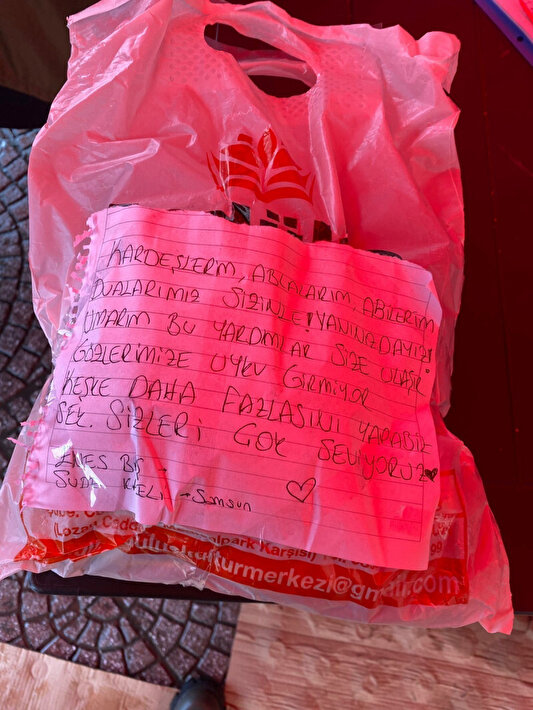 KARDEŞLERİM, ABLALARIM, ABİLERİM
DUALARIMIZ SİZİNLE! YANINIZDAYIZ!
UMARIM BU YARDIMLAR SİZE ULAŞIR
GÖZLERİMİZE UYKU GİRMİYOR
KEŞKE DAHA FAZLASINI YAPABİL
SEK. SİZLERİ ÇOK SEVİYORUZ
ENES BİŞ
SUDE → Samsun
(Lozan Cadd park Karşısı)
kulturmerkezi@gmail.com